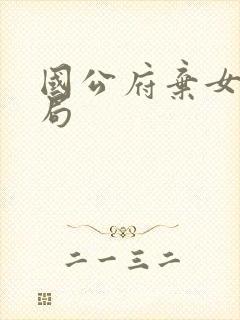 國公府棄女
局
二一三二